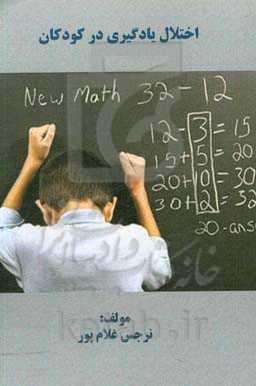 اختلال یادگیری در کودکان
New Math 32 - 12
12 - 3 = 15
15 + 5 = 20
20 + 10 = 30
30 + 2 = 32
20 - ans
مولف:
نرجس غلام پور
ketab.ir